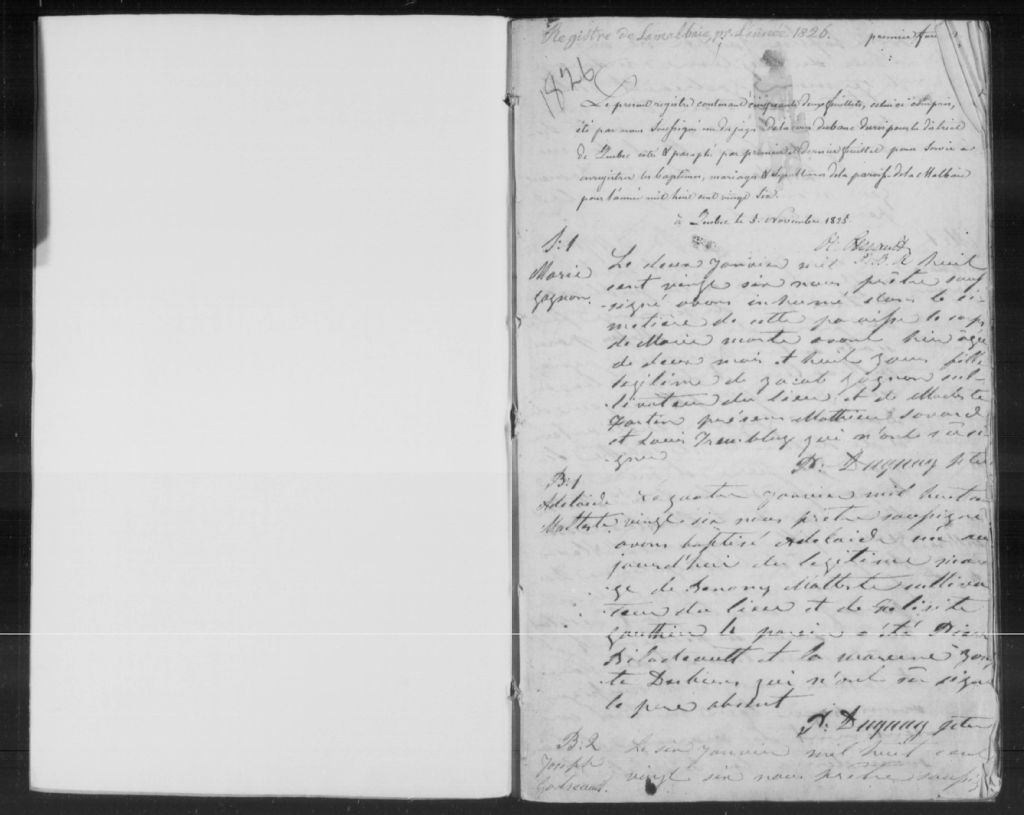 Registre de Lamalbaie, pr. L'année 1826.
premier feuil
1826
Le present registre contenant cinquante deux feuillets, celui ci compris,
été par nous Soussigné un des juges de la cour du banc du roi pour le district
de Quebec coté & paraphé par premier et dernier feuillet pour servir a
enregistrer les baptêmes, mariages & sépultures de la paroisse de la Malbaie
pour l'année mil huit cent vingt six.
à Quebec le 5. Novembre 1825
J. B. R
S: 1
Marie
gagnon.
Le deux janvier mil huit
cent vingt six nous prêtre sous
-signé avons inhumé dans le ci-
metière de cette paroisse le corps
de Marie morte avant hier âgée
de deux mois et huit jours fille
legitime de jacob gagnon cul-
tivateur du lieu et de Modeste
Fortin présens Mathieu savard
et Louis Tremblay qui n'ont su si
gner
Dugnay ptre
B: 1
Adelaide
Malteste
Le quatre janvier mil huit cen
vingt six nous prêtre soussigné
avons baptisé Adelaide née au
jourd'hui du legitime maria
ge de Benony Malteste cultiva
teur du lieu et de Felicité
Gauthier le parein a été
Biladeault et la mareine
te Dubien qui n'ont su signé
le pere absent
Dugnay ptre
B: 2
Joseph
Godreau.
Le six janvier mil huit cent
vingt six nous prêtre soussi